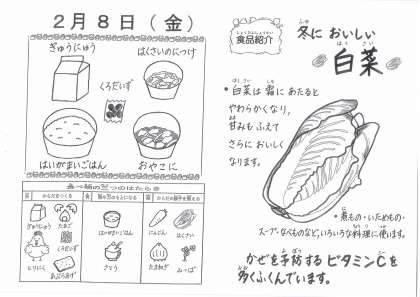 2月8日(金)
ぎゅうにゅう
はくさいのにつけ
くろだいず
はいがまいごはん
おやこに
食べ物の三つのはたらき
からだをつくる
熱や力のもとになる
からだの調子を整える
ぎゅうにゅう
たまご
くろだいず
とりにく
あぶらあげ
はいがまいごはん
さとう
にんじん
はくさい
たまねぎ
みつば
しょくひんしょうかい
食品紹介
ふゆ
冬に おいしい
はく さい
白菜
はくさい しも
・白菜は 霜に あたると
やわらかくなり,
あま
甘みも ふえて
さらに おいしく
なります。
・煮もの・いためもの・
スープ・なべものなど,いろいろな料理に使います。
よぼう
かぜを予防する ビタミンCを
おお
多くふくんでいます。